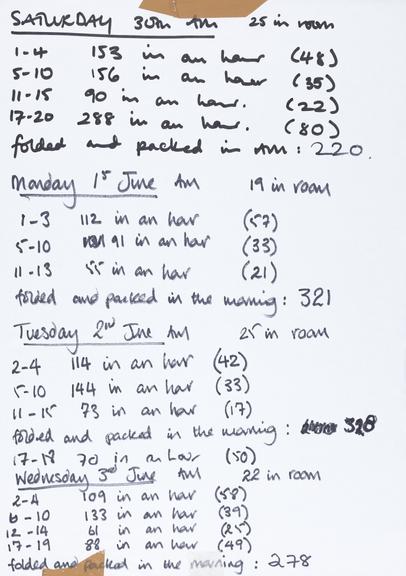 SATURDAY 30th AM 25 in room
1-4 153 in an hour (48)
5-10 156 in an hour (35)
11-15 90 in an hour. (22)
17-20 288 in an hour. (80)
folded and packed in AM : 220.
Monday 1st June AM 19 in room
1-3 112 in an hour (57)
5-10 91 in an hour (33)
11-13 55 in an hour (21)
folded and packed in the morning : 321
Tuesday 2nd June AM 25 in room
2-4 114 in an hour (42)
5-10 144 in an hour (33)
11-15 73 in an hour (17)
folded and packed in the morning : 328
17-18 70 in an hour (50)
Wednesday 3rd June AM 22 in room
2-4 109 in an hour (58)
6-10 133 in an hour (39)
12-14 61 in an hour (25)
17-19 88 in an hour (49)
folded and packed in the morning : 278